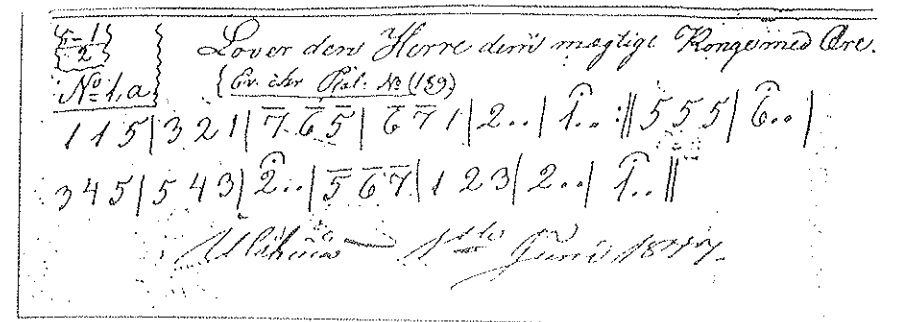 5-1 Lover den Herre den mægtige Konge med Ære.
2
No 1, a. (Ev. chr. Psal. No (159)
1 1 5 | 3 2 1 | 7 6 5 | 6 7 1 | 2 . . | 1 . . :|| 5 5 5 | 6 . . |
3 4 5 | 5 4 3 | 2 . . | 5 6 7 | 1 2 3 | 2 . . | 1 . . ||
1ste Juni